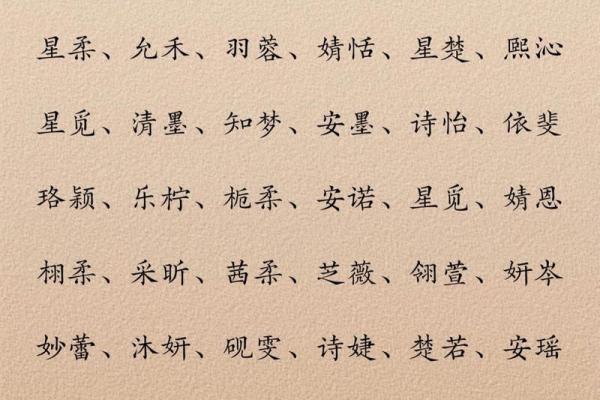 星柔、允禾、羽蓉、婧恬、星楚、熙沁
星觅、清墨、知梦、安墨、诗怡、依斐
珞颖、乐柠、栀柔、安诺、星觅、婧恩
栩柔、采昕、茜柔、芝薇、翎萱、妍岑
妙蕾、沐妍、砚雯、诗婕、楚若、安瑶